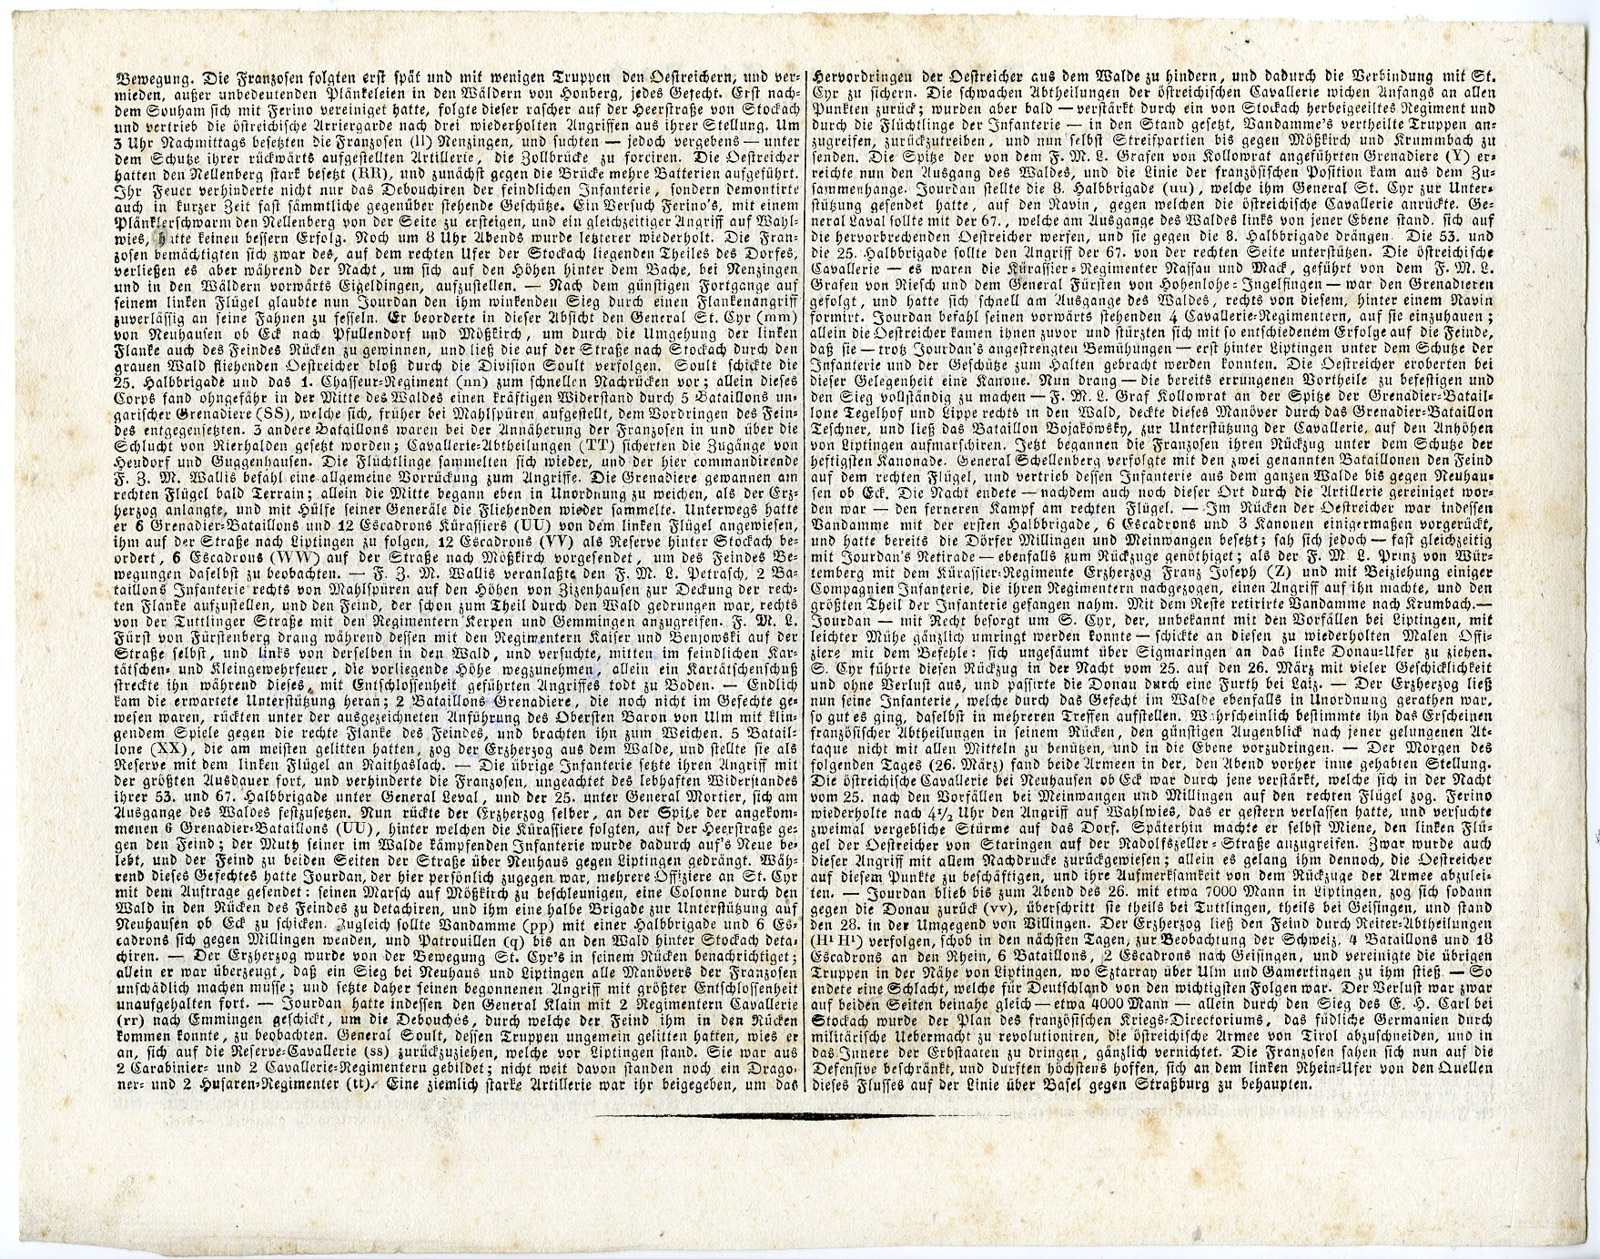 Bewegung. Die Franzosen folgten erst spät und mit wenigen Truppen den Oestreichern, und ver-
mieden, außer unbedeutenden Plänkeleien in den Wäldern von Honberg, jedes Gefecht. Erst nach-
dem Souham sich mit Ferino vereiniget hatte, folgte dieser rascher auf der Heerstraße von Stockach
und vertrieb die östreichische Arriergarde nach drei wiederholten Angriffen aus ihrer Stellung. Um
3 Uhr Nachmittags besetzten die Franzosen (ll) Nenzingen, und suchten — jedoch vergebens — unter
dem Schutze ihrer rückwärts aufgestellten Artillerie, die Zollbrücke zu forciren. Die Oestreicher
hatten den Nellenberg stark besetzt (RR), und zunächst gegen die Brücke mehre Batterien aufgeführt.
Ihr Feuer verhinderte nicht nur das Debouchiren der feindlichen Infanterie, sondern demontirte
auch in kurzer Zeit fast sämmtliche gegenüber stehende Geschütze. Ein Versuch Ferino's, mit einem
Plänklerschwarm den Nellenberg von der Seite zu ersteigen, und ein gleichzeitiger Angriff auf Wahl-
wies, hatte keinen bessern Erfolg. Noch um 8 Uhr Abends wurde letzterer wiederholt. Die Fran-
zosen bemächtigten sich zwar des, auf dem rechten Ufer der Stockach liegenden Theiles des Dorfes,
verließen es aber während der Nacht, um sich auf den Höhen hinter dem Bache, bei Nenzingen
und in den Wäldern vorwärts Eigeldingen, aufzustellen. — Nach dem günstigen Fortgange auf
seinem linken Flügel glaubte nun Jourdan den ihm winkenden Sieg durch einen Flankenangriff
zuverlässig an seine Fahnen zu fesseln. Er beorderte in dieser Absicht den General St. Cyr (mm)
von Neuhausen ob Eck nach Pfullendorf und Mößkirch, um durch die Umgehung der linken
Flanke auch des Feindes Rücken zu gewinnen, und ließ die auf der Straße nach Stockach durch den
grauen Wald fliehenden Oestreicher bloß durch die Division Soult verfolgen. Soult schickte die
25. Halbbrigade und das 1. Chasseur-Regiment (nn) zum schnellen Nachrücken vor; allein dieses
Corps fand ohngefähr in der Mitte des Waldes einen kräftigen Widerstand durch 5 Bataillons un-
garischer Grenadiere (SS), welche sich, früher bei Mahlspüren aufgestellt, dem Vordringen des Fein-
des entgegensetzten. 3 andere Bataillons waren bei der Annäherung der Franzosen in und über die
Schlucht von Rierhalden gesetzt worden; Cavallerie-Abtheilungen (TT) sicherten die Zugänge von
Heudorf und Guggenhausen. Die Flüchtlinge sammelten sich wieder, und der hier commandirende
F. Z. M. Wallis befahl eine allgemeine Vorrückung zum Angriffe. Die Grenadiere gewannen am
rechten Flügel bald Terrain; allein die Mitte begann eben in Unordnung zu weichen, als der Erz-
herzog anlangte, und mit Hülfe seiner Generäle die Fliehenden wieder sammelte. Unterwegs hatte
er 6 Grenadier-Bataillons und 12 Escadrons Kürassiers (UU) von dem linken Flügel angewiesen,
ihm auf der Straße nach Liptingen zu folgen, 12 Escadrons (VV) als Reserve hinter Stockach be-
ordert, 6 Escadrons (WW) auf der Straße nach Mößkirch vorgesendet, um des Feindes Be-
wegungen daselbst zu beobachten. — F. Z. M. Wallis veranlaßte den F. M. L. Petrasch, 2 Ba-
taillons Infanterie rechts von Mahlspüren auf den Höhen von Zizenhausen zur Deckung der rech-
ten Flanke aufzustellen, und den Feind, der schon zum Theil durch den Wald gedrungen war, rechts
von der Tuttlinger Straße mit den Regimentern Kerpen und Gemmingen anzugreifen. F. M. L.
Fürst von Fürstenberg drang während dessen mit den Regimentern Kaiser und Benjowski auf der
Straße selbst, und links von derselben in den Wald, und versuchte, mitten im feindlichen Kar-
tätschen- und Kleingewehrfeuer, die vorliegende Höhe wegzunehmen, allein ein Kartätschenschuß
streckte ihn während dieses, mit Entschlossenheit geführten Angriffes todt zu Boden. — Endlich
kam die erwartete Unterstützung heran; 2 Bataillons Grenadiere, die noch nicht im Gefechte ge-
wesen waren, rückten unter der ausgezeichneten Anführung des Obersten Baron von Ulm mit klin-
gendem Spiele gegen die rechte Flanke des Feindes, und brachten ihn zum Weichen. 5 Batail-
lone (XX), die am meisten gelitten hatten, zog der Erzherzog aus dem Walde, und stellte sie als
Reserve mit dem linken Flügel an Raithaslach. — Die übrige Infanterie setzte ihren Angriff mit
der größten Ausdauer fort, und verhinderte die Franzosen, ungeachtet des lebhaften Widerstandes
ihrer 53. und 67. Halbbrigade unter General Leval, und der 25. unter General Mortier, sich am
Ausgange des Waldes festzusetzen. Nun rückte der Erzherzog selber, an der Spitze der angekom-
menen 6 Grenadier-Bataillons (UU), hinter welchen die Kürassiere folgten, auf der Heerstraße ge-
gen den Feind; der Muth seiner im Walde kämpfenden Infanterie wurde dadurch auf's Neue be-
lebt, und der Feind zu beiden Seiten der Straße über Neuhaus gegen Liptingen gedrängt. Wäh-
rend dieses Gefechtes hatte Jourdan, der hier persönlich zugegen war, mehrere Offiziere an St. Cyr
mit dem Auftrage gesendet: seinen Marsch auf Mößkirch zu beschleunigen, eine Colonne durch den
Wald in den Rücken des Feindes zu detachiren, und ihm eine halbe Brigade zur Unterstützung auf
Neuhausen ob Eck zu schicken. Zugleich sollte Vandamme (pp) mit einer Halbbrigade und 6 Es-
cadrons sich gegen Millingen wenden, und Patrouillen (q) bis an den Wald hinter Stockach deta-
chiren. — Der Erzherzog wurde von der Bewegung St. Cyr's in seinem Rücken benachrichtiget;
allein er war überzeugt, daß ein Sieg bei Neuhaus und Liptingen alle Manövers der Franzosen
unschädlich machen müsse; und setzte daher seinen begonnenen Angriff mit größter Entschlossenheit
unaufgehalten fort. — Jourdan hatte indessen den General Klain mit 2 Regimentern Cavallerie
(rr) nach Emmingen geschickt, um die Debouchés, durch welche der Feind ihm in den Rücken
kommen konnte, zu beobachten. General Soult, dessen Truppen ungemein gelitten hatten, wies er
an, sich auf die Reserve-Cavallerie (ss) zurückzuziehen, welche vor Liptingen stand. Sie war aus
2 Carabinier- und 2 Cavallerie-Regimentern gebildet; nicht weit davon standen noch ein Drago-
ner- und 2 Husaren-Regimenter (tt). Eine ziemlich starke Artillerie war ihr beigegeben, um das
Hervordringen der Oestreicher aus dem Walde zu hindern, und dadurch die Verbindung mit St.
Cyr zu sichern. Die schwachen Abtheilungen der östreichischen Cavallerie wichen Anfangs an allen
Punkten zurück; wurden aber bald — verstärkt durch ein von Stockach herbeigeeiltes Regiment und
durch die Flüchtlinge der Infanterie — in den Stand gesetzt, Vandamme's vertheilte Truppen an-
zugreifen, zurückzutreiben, und nun selbst Streifpartien bis gegen Mößkirch und Krummbach zu
senden. Die Spitze der von dem F. M. L. Grafen von Kollowrat angeführten Grenadiere (Y) er-
reichte nun den Ausgang des Waldes, und die Linie der französischen Position kam aus dem Zu-
sammenhange. Jourdan stellte die 8. Halbbrigade (uu), welche ihm General St. Cyr zur Unter-
stützung gesendet hatte, auf den Ravin, gegen welchen die östreichische Cavallerie anrückte. Ge-
neral Laval sollte mit der 67., welche am Ausgange des Waldes links von jener Ebene stand, sich auf
die hervorbrechenden Oestreicher werfen, und sie gegen die 8. Halbbrigade drängen. Die 53. und
die 25. Halbbrigade sollte den Angriff der 67. von der rechten Seite unterstützen. Die östreichische
Cavallerie — es waren die Kürassier-Regimenter Nassau und Mack, geführt von dem F. M. L.
Grafen von Riesch und dem General Fürsten von Hohenlohe-Ingelfingen — war den Grenadieren
gefolgt, und hatte sich schnell am Ausgange des Waldes, rechts von diesem, hinter einem Ravin
formirt. Jourdan befahl seinen vorwärts stehenden 4 Cavallerie-Regimentern, auf sie einzuhauen;
allein die Oestreicher kamen ihnen zuvor und stürzten sich mit so entschiedenem Erfolge auf die Feinde,
daß sie — trotz Jourdan's angestrengten Bemühungen — erst hinter Liptingen unter dem Schutze der
Infanterie und der Geschütze zum Halten gebracht werden konnten. Die Oestreicher eroberten bei
dieser Gelegenheit eine Kanone. Nun drang — die bereits errungenen Vortheile zu befestigen und
den Sieg vollständig zu machen — F. M. L. Graf Kollowrat an der Spitze der Grenadier-Batail-
lone Tegelhof und Lippe rechts in den Wald, deckte dieses Manöver durch das Grenadier-Bataillon
Teschner, und ließ das Bataillon Bojakowsky, zur Unterstützung der Cavallerie, auf den Anhöhen
von Liptingen aufmarschiren. Jetzt begannen die Franzosen ihren Rückzug unter dem Schutze der
heftigsten Kanonade. General Schellenberg verfolgte mit den zwei genannten Bataillonen den Feind
auf dem rechten Flügel, und vertrieb dessen Infanterie aus dem ganzen Walde bis gegen Neuhau-
sen ob Eck. Die Nacht endete — nachdem auch noch dieser Ort durch die Artillerie gereiniget wor-
den war — den ferneren Kampf am rechten Flügel. — Im Rücken der Oestreicher war indessen
Vandamme mit der ersten Halbbrigade, 6 Escadrons und 3 Kanonen einigermaßen vorgerückt,
und hatte bereits die Dörfer Millingen und Meinwangen besetzt; sah sich jedoch — fast gleichzeitig
mit Jourdan's Retirade — ebenfalls zum Rückzuge genöthiget; als der F. M. L. Prinz von Wür-
temberg mit dem Kürassier-Regimente Erzherzog Franz Joseph (Z) und mit Beiziehung einiger
Compagnien Infanterie, die ihren Regimentern nachgezogen, einen Angriff auf ihn machte, und den
größten Theil der Infanterie gefangen nahm. Mit dem Reste retirirte Vandamme nach Krumbach.—
Jourdan — mit Recht besorgt um S. Cyr, der, unbekannt mit den Vorfällen bei Liptingen, mit
leichter Mühe gänzlich umringt werden konnte — schickte an diesen zu wiederholten Malen Offi-
ziere mit dem Befehle: sich ungesäumt über Sigmaringen an das linke Donau-Ufer zu ziehen.
S. Cyr führte diesen Rückzug in der Nacht vom 25. auf den 26. März mit vieler Geschicklichkeit
und ohne Verlust aus, und passirte die Donau durch eine Furth bei Laiz. — Der Erzherzog ließ
nun seine Infanterie, welche durch das Gefecht im Walde ebenfalls in Unordnung gerathen war,
so gut es ging, daselbst in mehreren Treffen aufstellen. Wahrscheinlich bestimmte ihn das Erscheinen
französischer Abtheilungen in seinem Rücken, den günstigen Augenblick nach jener gelungenen At-
taque nicht mit allen Mitteln zu benützen, und in die Ebene vorzudringen. — Der Morgen des
folgenden Tages (26. März) fand beide Armeen in der, den Abend vorher inne gehabten Stellung.
Die östreichische Cavallerie bei Neuhausen ob Eck war durch jene verstärkt, welche sich in der Nacht
vom 25. nach den Vorfällen bei Meinwangen und Millingen auf den rechten Flügel zog. Ferino
wiederholte nach 4½ Uhr den Angriff auf Wahlwies, das er gestern verlassen hatte, und versuchte
zweimal vergebliche Stürme auf das Dorf. Späterhin machte er selbst Miene, den linken Flü-
gel der Oestreicher von Staringen auf der Radolfszeller-Straße anzugreifen. Zwar wurde auch
dieser Angriff mit allem Nachdrucke zurückgewiesen; allein es gelang ihm dennoch, die Oestreicher
auf diesem Punkte zu beschäftigen, und ihre Aufmerksamkeit von dem Rückzuge der Armee abzulei-
ten. — Jourdan blieb bis zum Abend des 26. mit etwa 7000 Mann in Liptingen, zog sich sodann
gegen die Donau zurück (vv), überschritt sie theils bei Tuttlingen, theils bei Geisingen, und stand
den 28. in der Umgegend von Villingen. Der Erzherzog ließ den Feind durch Reiter-Abtheilungen
(H¹ H¹) verfolgen, schob in den nächsten Tagen, zur Beobachtung der Schweiz, 4 Bataillons und 18
Escadrons an den Rhein, 6 Bataillons, 2 Escadrons nach Geisingen, und vereinigte die übrigen
Truppen in der Nähe von Liptingen, wo Sztarray über Ulm und Gamertingen zu ihm stieß. — So
endete eine Schlacht, welche für Deutschland von den wichtigsten Folgen war. Der Verlust war zwar
auf beiden Seiten beinahe gleich — etwa 4000 Mann — allein durch den Sieg des E. H. Carl bei
Stockach wurde der Plan des französischen Kriegs-Directoriums, das südliche Germanien durch
militärische Uebermacht zu revolutioniren, die östreichische Armee von Tirol abzuschneiden, und in
das Innere der Erbstaaten zu dringen, gänzlich vernichtet. Die Franzosen sahen sich nun auf die
Defensive beschränkt, und durften höchstens hoffen, sich an dem linken Rhein-Ufer von den Quellen
dieses Flusses auf der Linie über Basel gegen Straßburg zu behaupten.